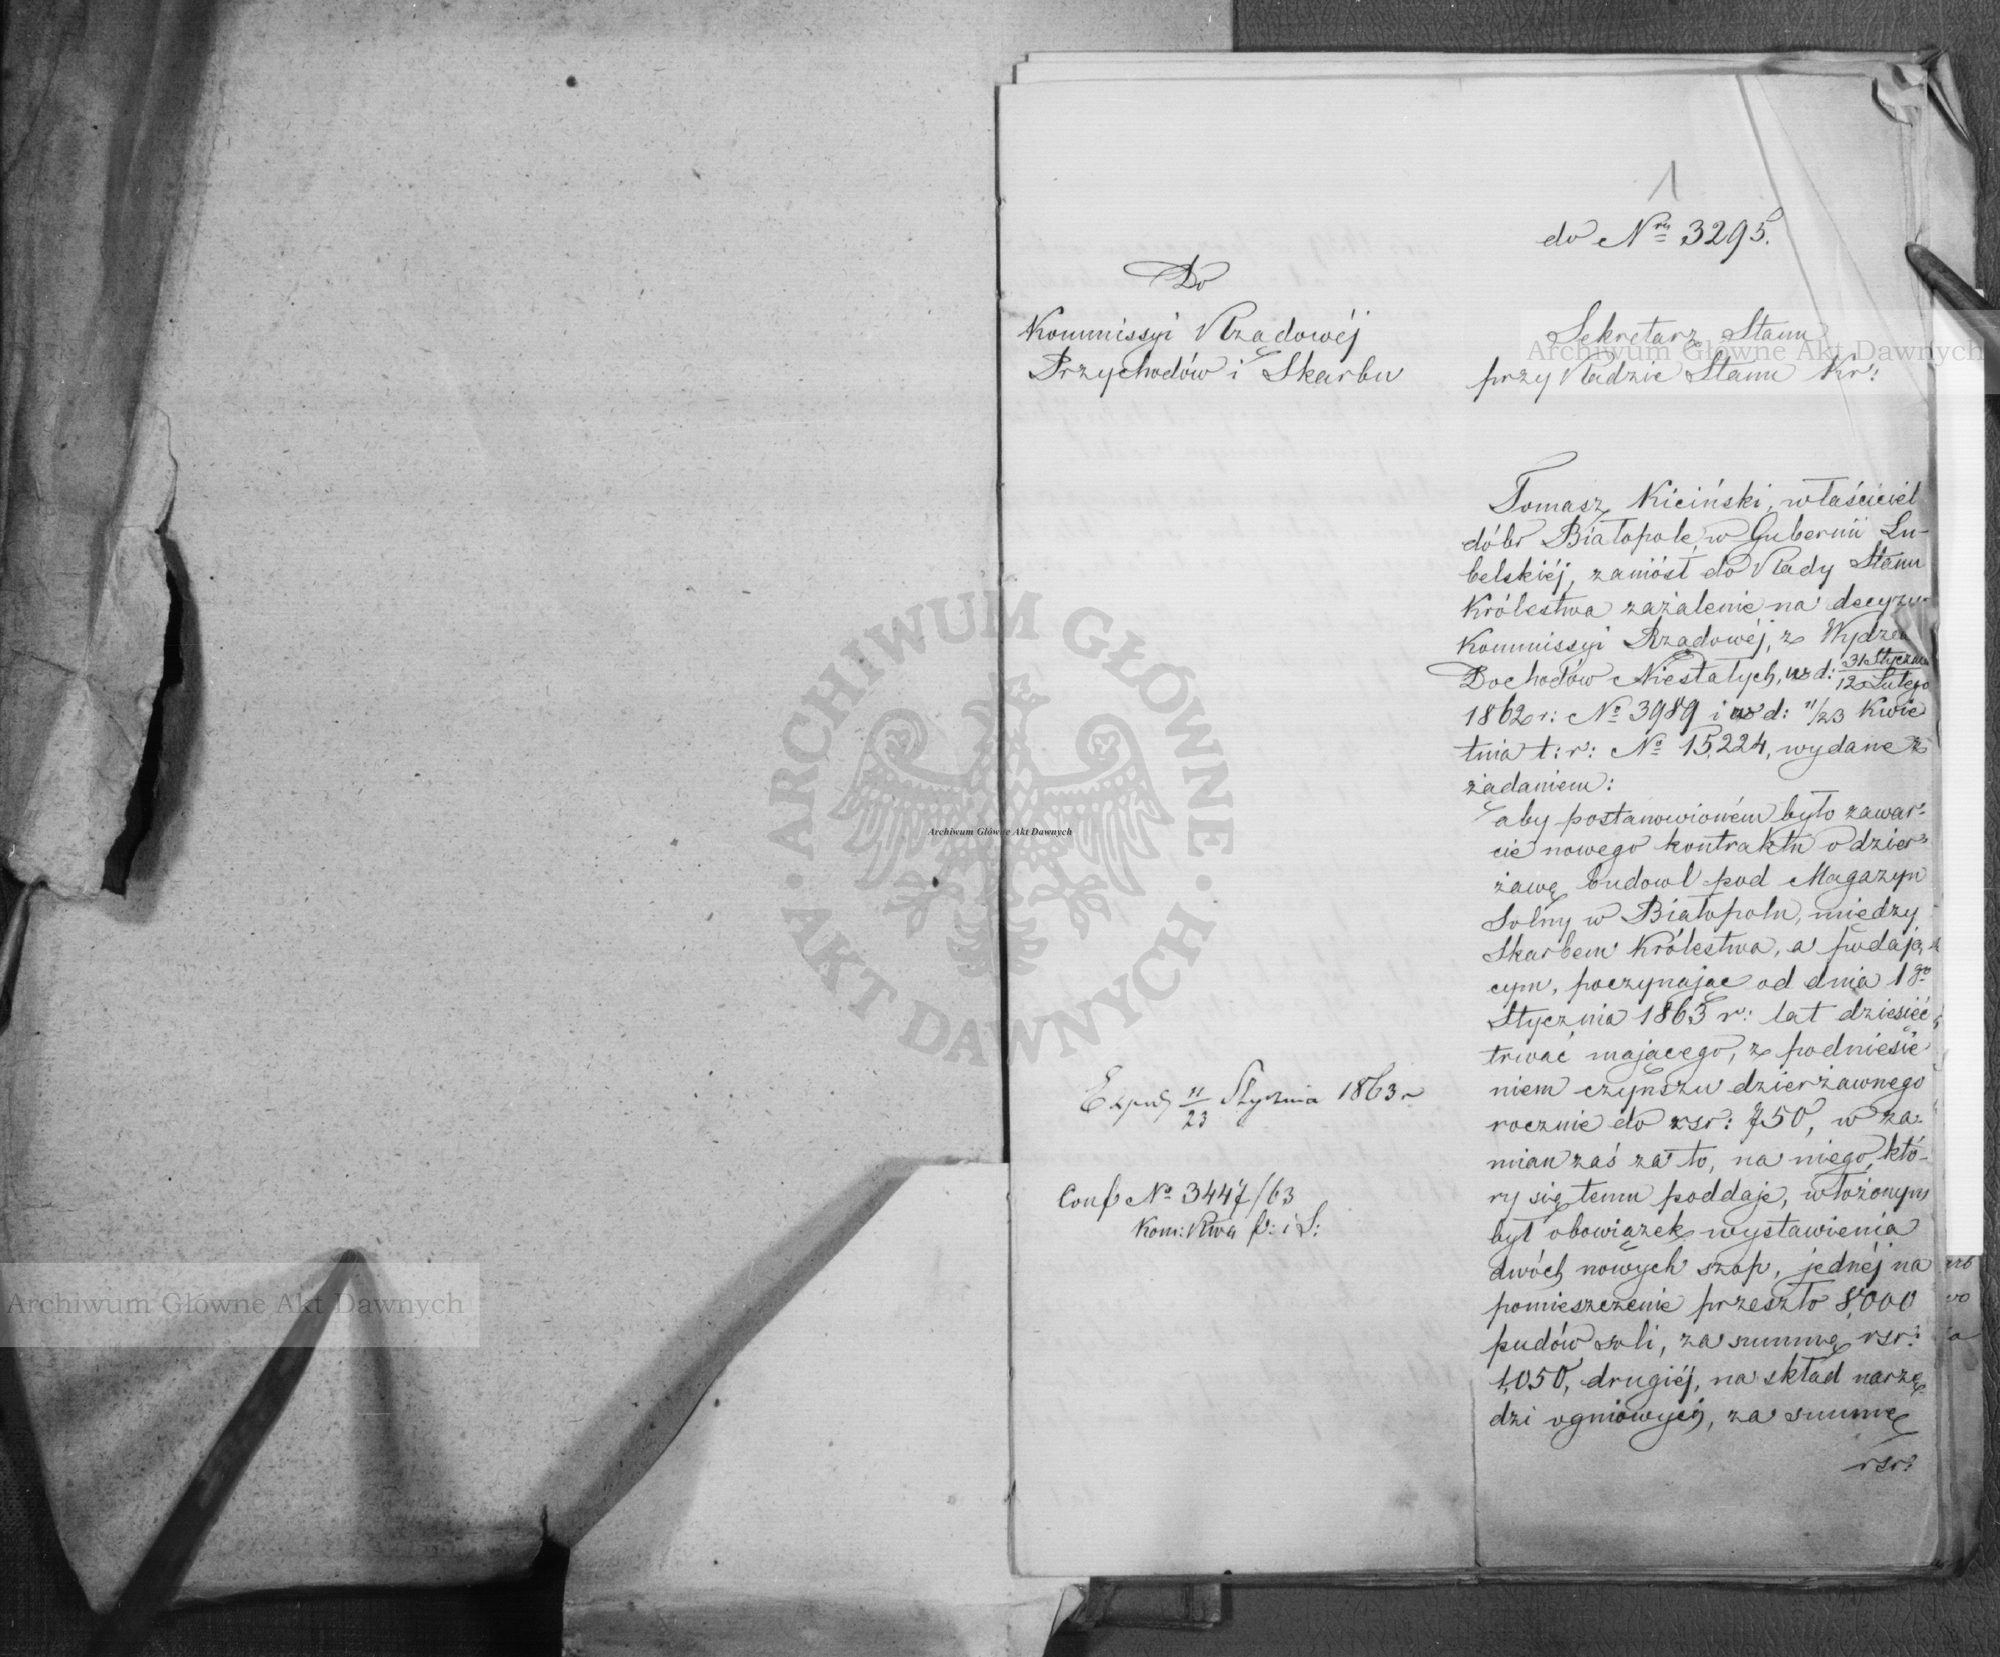 1
do Nru 3295.
Do
Kommissyi Rządowéj
Przychodów i Skarbu
Sekretarz Stanu
przy Radzie Stanu Kr:
Tomasz Kiciński, właściciel
dóbr Białopole w Gubernii Lu-
belskiéj, zaniósł do Rady Stanu
Królestwa zażalenie na decyzye
Kommissyi Rządowéj, z
Dochodów Niestałych, w d: 31 Stycznia/12 Lutego
1862 r: No 3989 i w d: 11/23 Kwie
tnia t: r: No 15,224, wydane z
żądaniem:
aby postanowioném było zawar-
cie nowego kontraktu o dzier-
żawę budowl pod Magazyn
Solny w Białopolu, między
Skarbem Królestwa, a podają-
cym, poczynając od dnia 1go
Stycznia 1863 r: lat dziesięć
trwać mającego, z podniesie
niem czynszu dzierżawnego
rocznie do rsr: 750, w za-
mian zaś za to, na niego, któ-
ry się temu poddaje, włożonym
był obowiązek wystawienia
dwóch nowych szop, jednéj na
pomieszczenie przeszło 8,000
pudów soli, za summę rsr:
1,050, drugiéj, na skład narzę
dzi ogniowych, za summę
rsr:
11/23 Stycznia 1863 r
Conf No 3447/63
Kom: Rwa P: i S:
Archiwum Główne Akt Dawnych
Archiwum Główne Akt Dawnych
Archiwum Główne Akt Dawnych
ARCHIWUM GŁÓWNE · AKT DAWNYCH ·